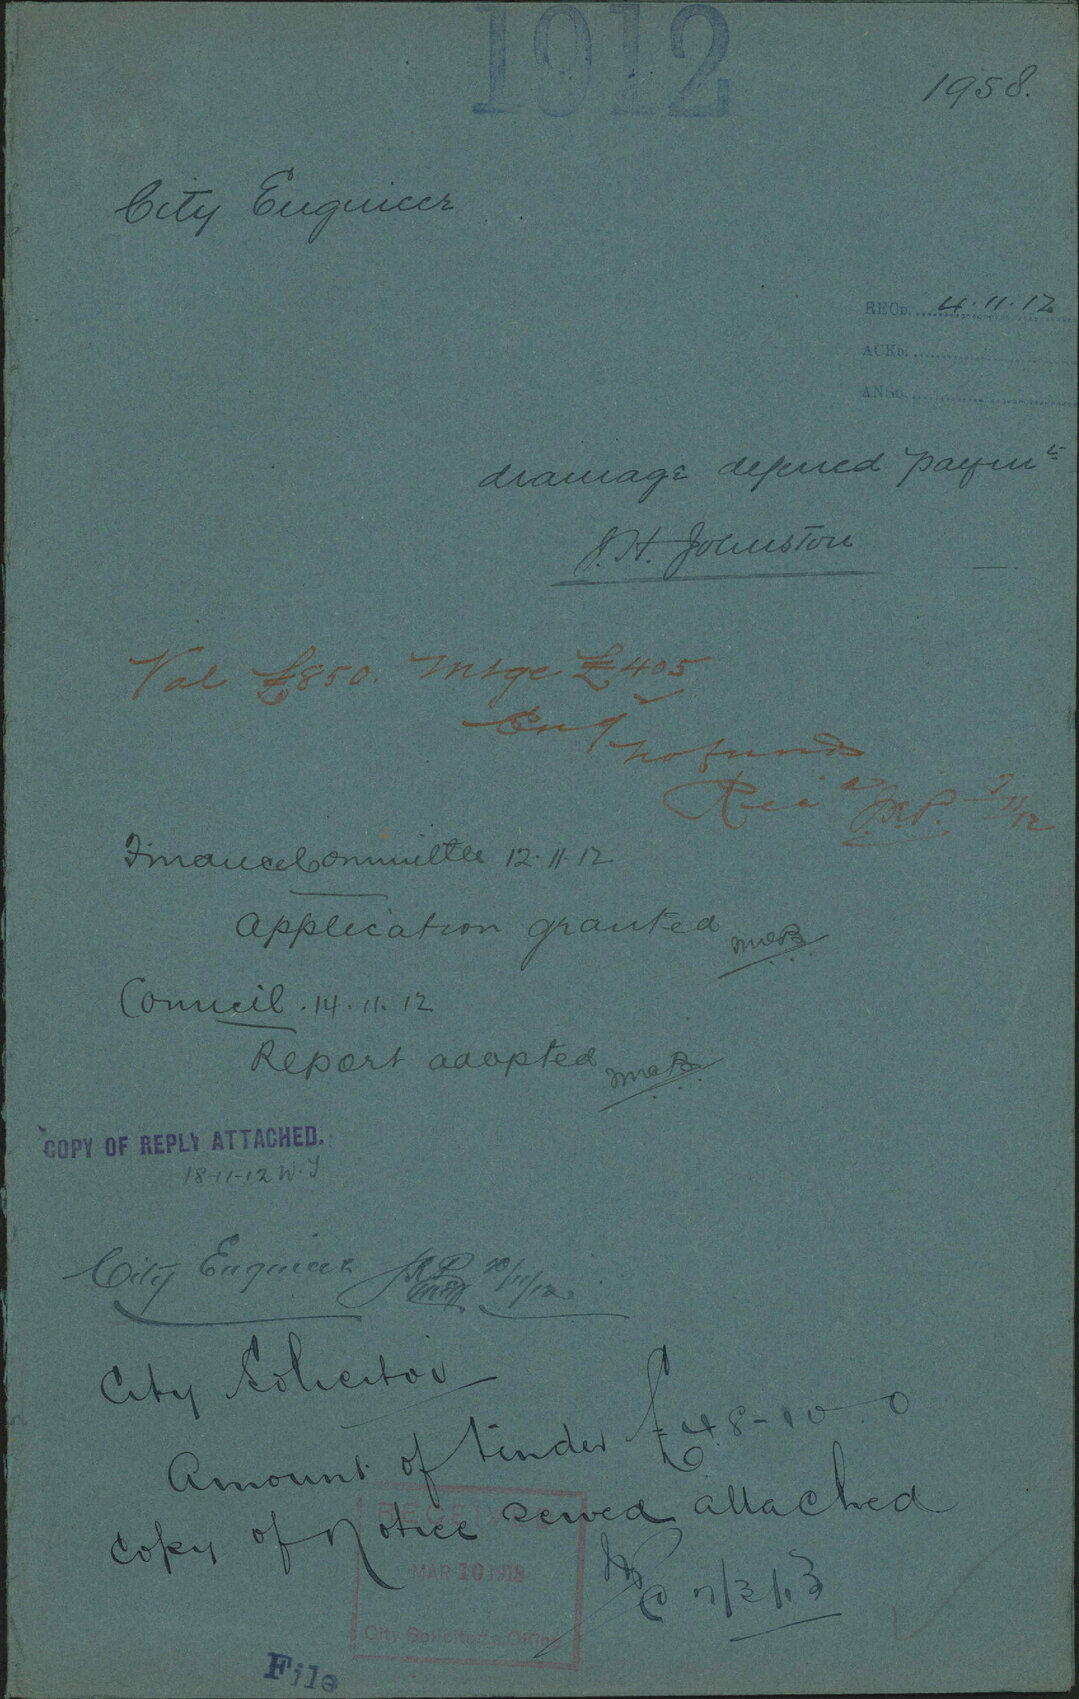 1912
1958.
City Engineer
RECD. 4.11.12
ACKD.
ANSD.
drainage deferred paymts
J. H. Johnston
Val £850. Mtge £405
Eng
no funds
JRP. 7/11/12
Finance Committee 12.11.12
Application granted
Council . 14.11.12
Report adopted
COPY OF REPLY ATTACHED.
18-11-12
City Engineer
City Solicitor
Amount of tender £48-10.0
copy of Notice served attached
RECEIVED
MAR 10 1913
City Solicitor's Office
7/3/13
File